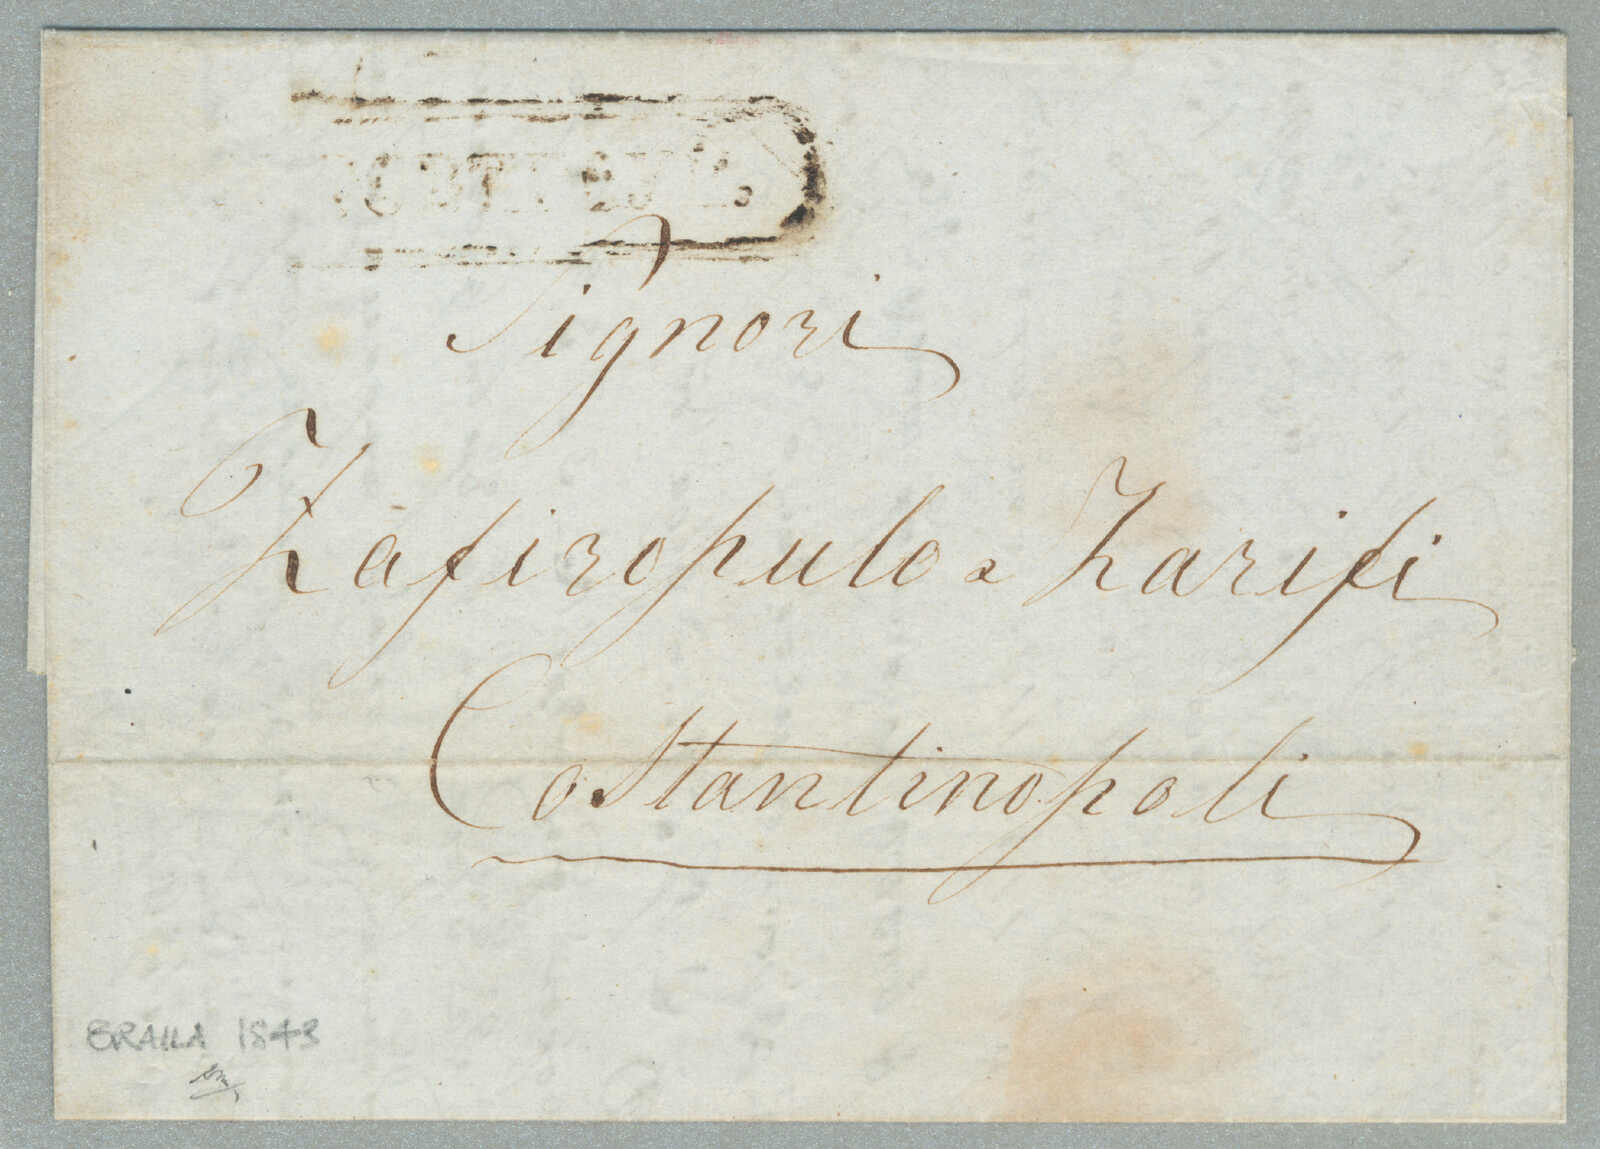 Signori
Zafiropulo & Zarifi
Costantinopoli
BRAILA 1843